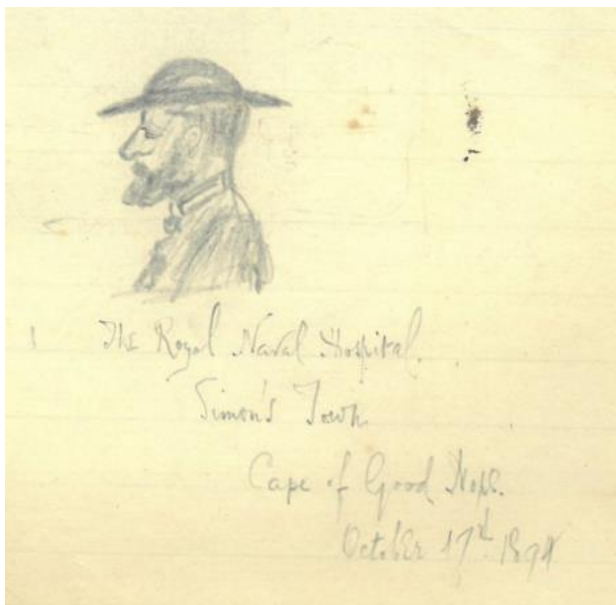 The Royal Naval Hospital.
Simon's Town
Cape of Good Hope.
October 17th 1894